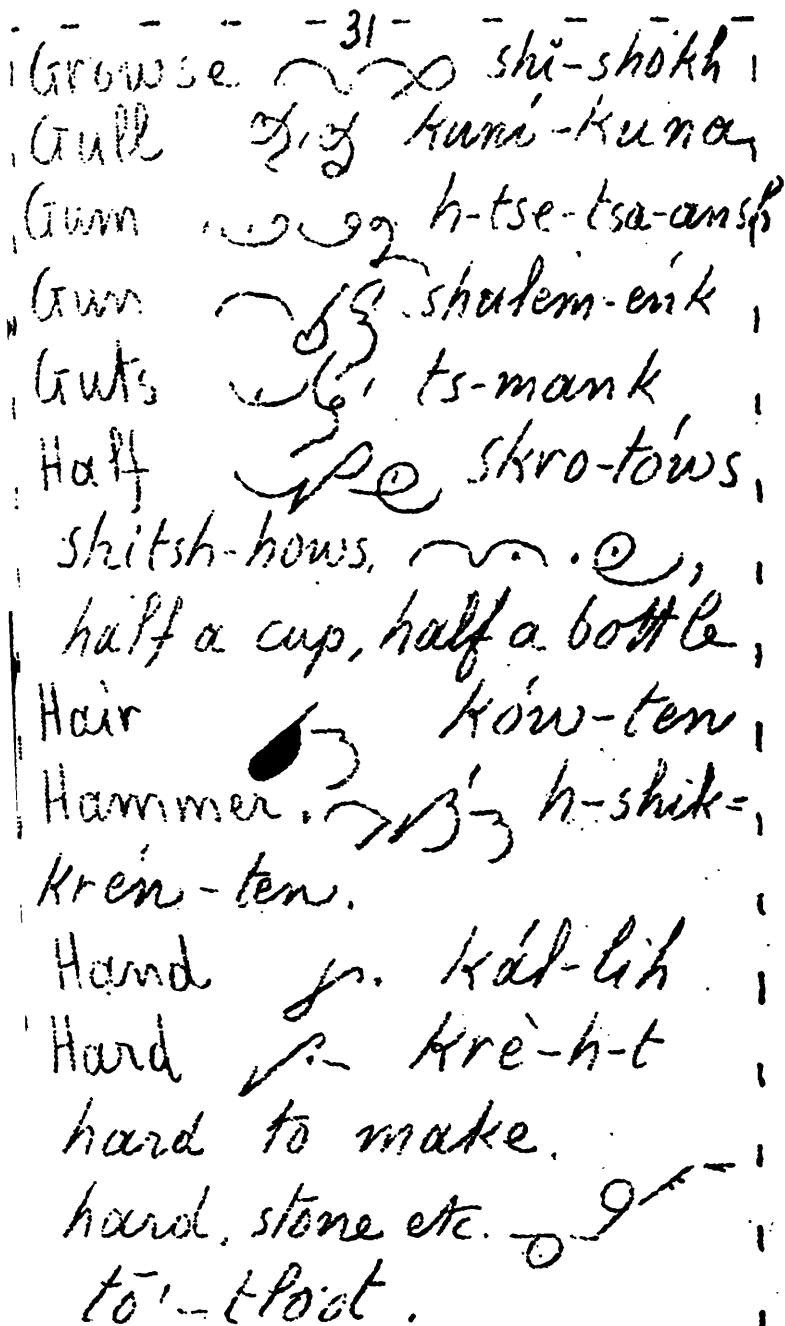 -31-
Growse shi-shokh
Gull kuní-kuna,
Gum h-tse-tsa-ansh
Gun shulem-eńk
Guts ts-mank
Half skro-tóws
shitsh-hows,
half a cup, half a bottle
Hair ków-ten
Hammer. h-shik=
krén-ten.
Hand kál-lih
Hard krè-h-t
hard to make.
hard, stone etc.
tō'-tloot.